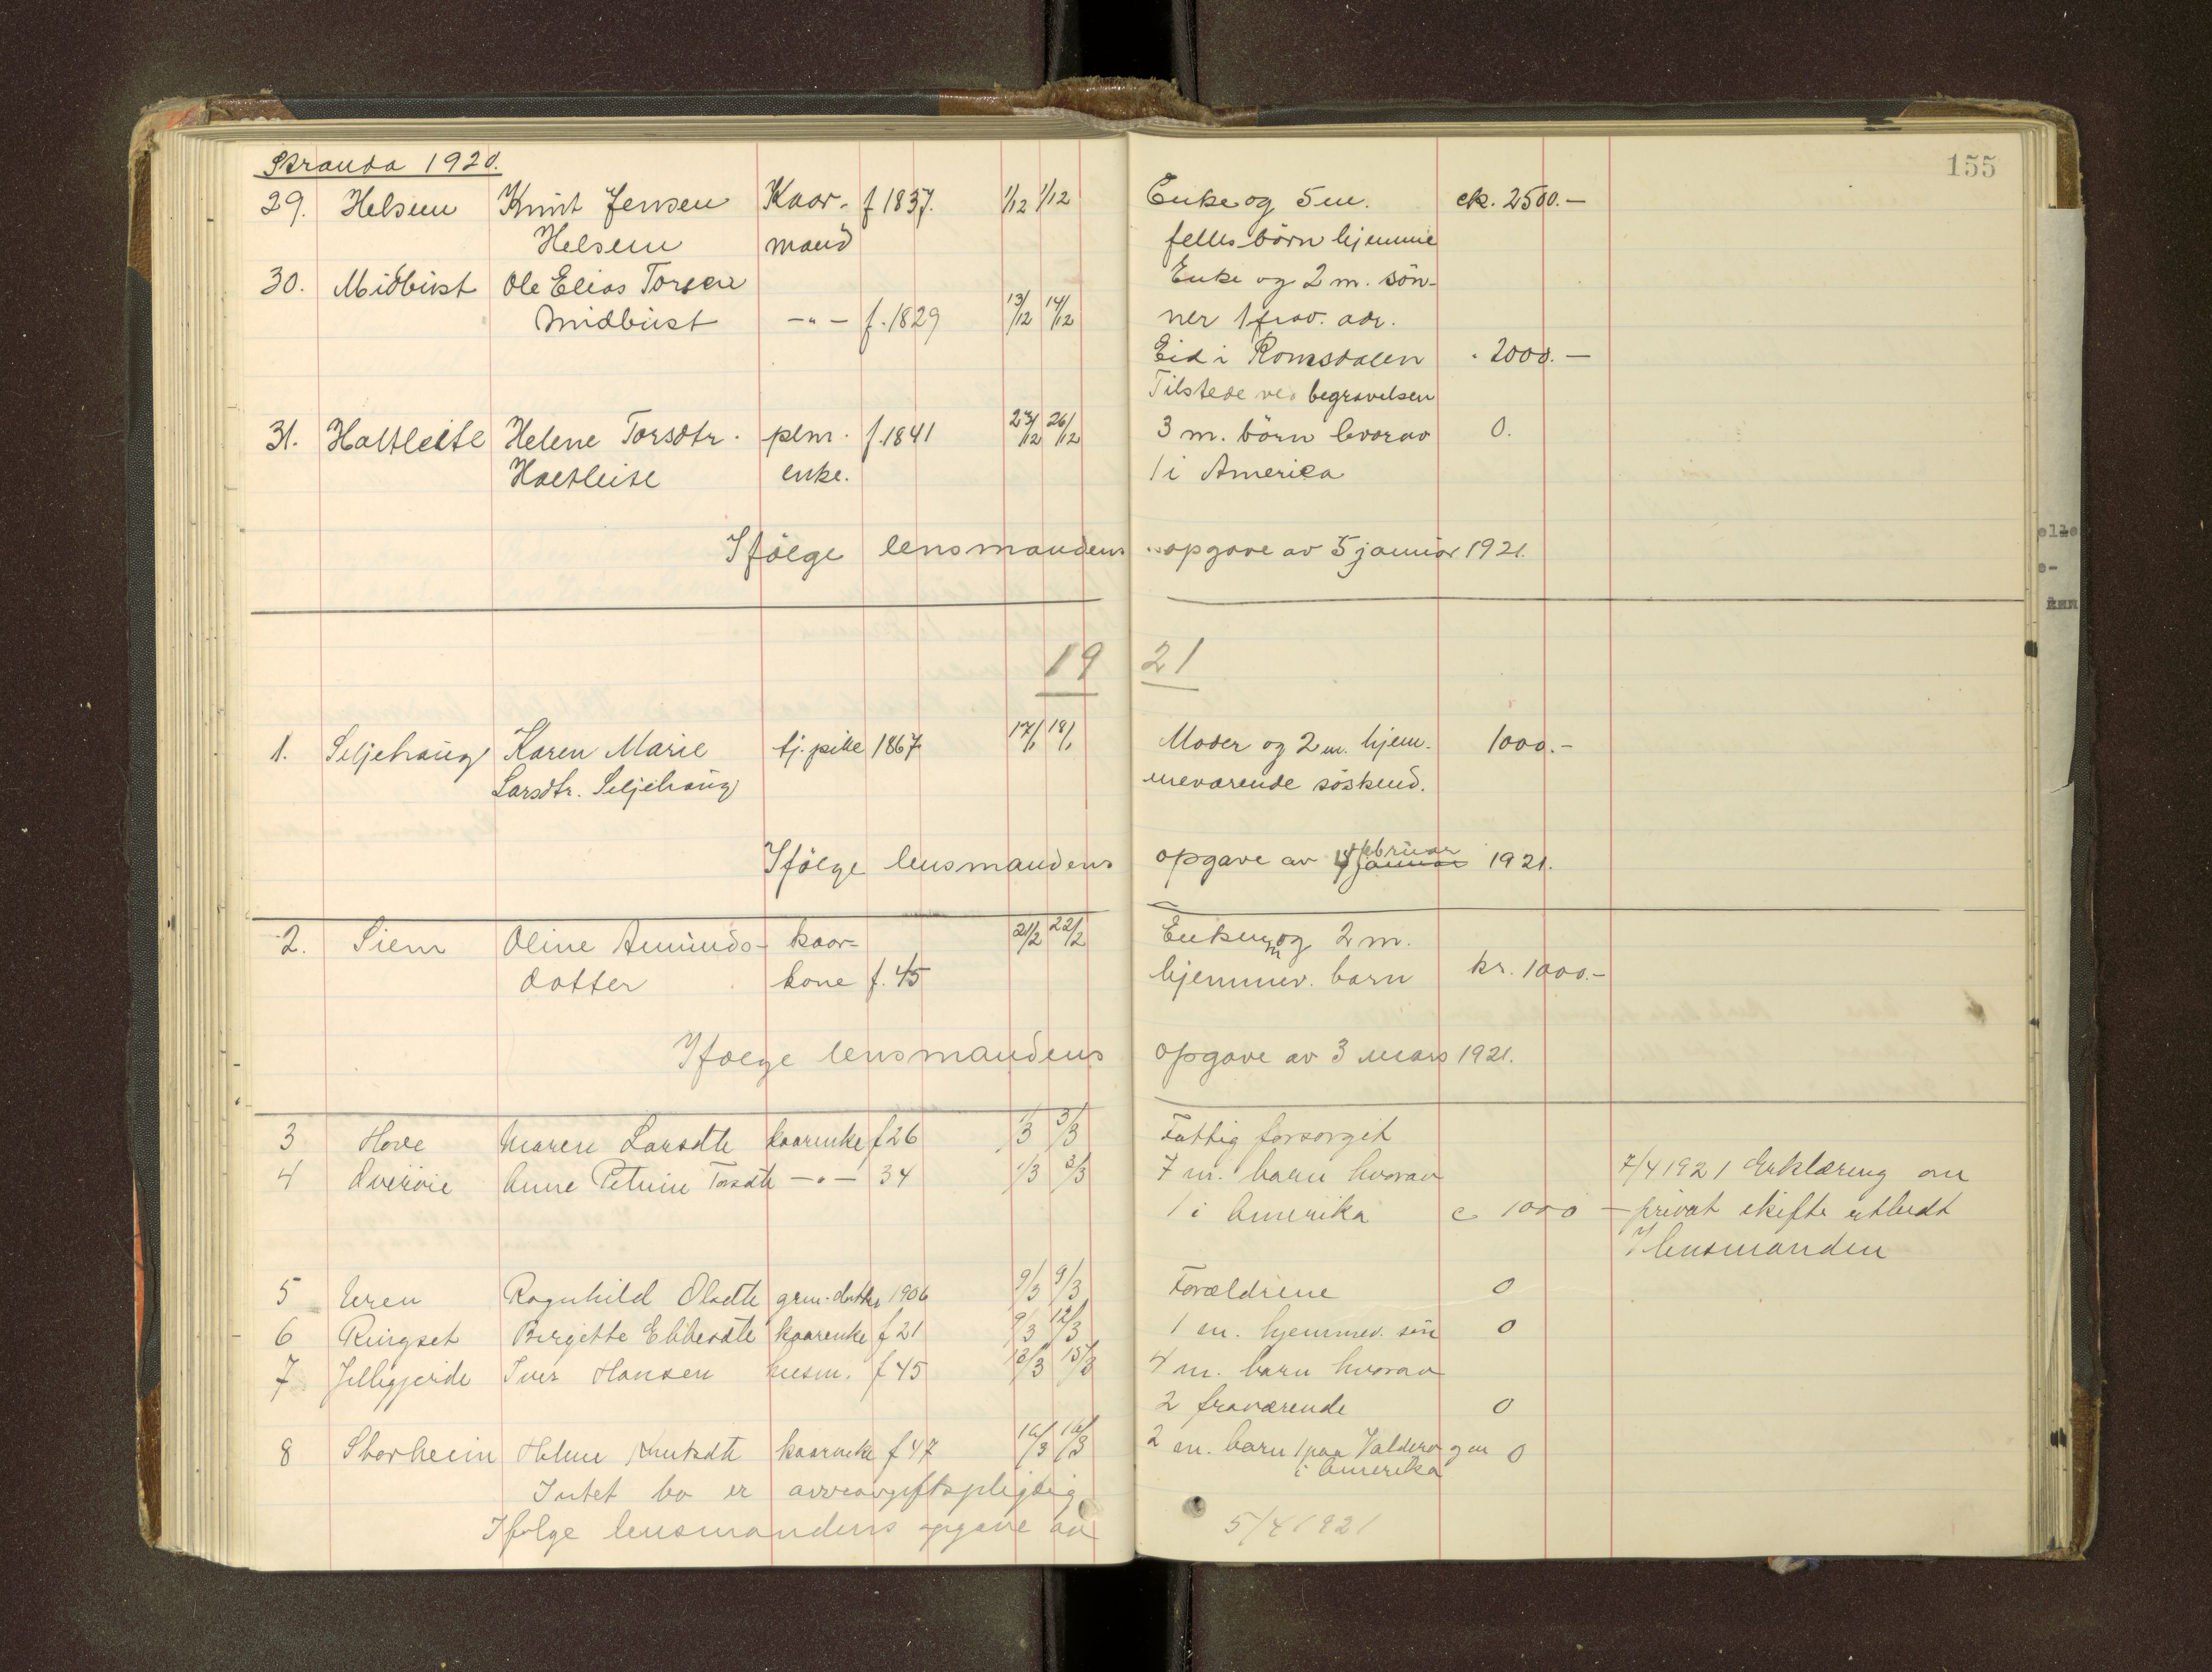 Stranda 1920.
155
29. Helsem Knut Jensen Kaar- f 1837. 1/12 1/12 Enke og 5 m. ck. 2500.-
Helsem mand felles börn hjemme
30. Midbust Ole Elias Torsen Enke og 2 m. sön-
Midbust -"- f. 1829 13/12 14/12 ner 1 frav. adr.
Eid i Romsdalen " 2000.-
Tilstede ved begravelsen
31. Holtleite Helene Torsdtr. plm. f. 1841 23/12 26/12 3 m. börn hvorav 0.
Holtleite enke. 1 i America
Ifölge lensmandens opgave av 5 januar 1921.
1921
1. Seljehaug Karen Marie tj. pike 1867 17/1 18/1 Moder og 2 m. hjem- 1000.-
Larsdtr. Seljehaug meværende söskend.
Ifölge lensmandens opgave av 4 januar februar 1921.
2. Siem Oline Amunds- kaar- 21/2 22/2 Enkem. og 2 m.
dotter kone f. 45 hjemmev. barn kr. 1000.-
Ifölge lensmandens opgave av 3 mars 1921.
3 Hove Maren Larsdtr kaarenke f 26 1/3 3/3 Fattig forsorget
4 Överöie Anne Petrine Torsdtr -"- 34 1/3 3/3 7 m. barn hvorav 7/4 1921 Erklæring om
1 i Amerika c 1000 - privat skifte utstedt
lensmanden
5 Uren Ragnhild Olsdtr grm. datter 1906 9/3 9/3 Forældrene 0
6 Ringset Birgitte Ellevsdtr kaarenke f 21 9/3 12/3 1 m. hjemmev. sön 0
7 Jelligjerde Iver Hansen husm. f 45 13/3 15/3 4 m. barn hvorav
2 fraværende 0
8 Storheim Helene Knutsdtr kaarenke f 47 16/3 16/3 2 m. barn 1 paa Valderö og en 0
i Amerika
Intet bo er arveavgiftspligtig
Ifölge lensmandens opgave av 5/4 1921
elle
e-